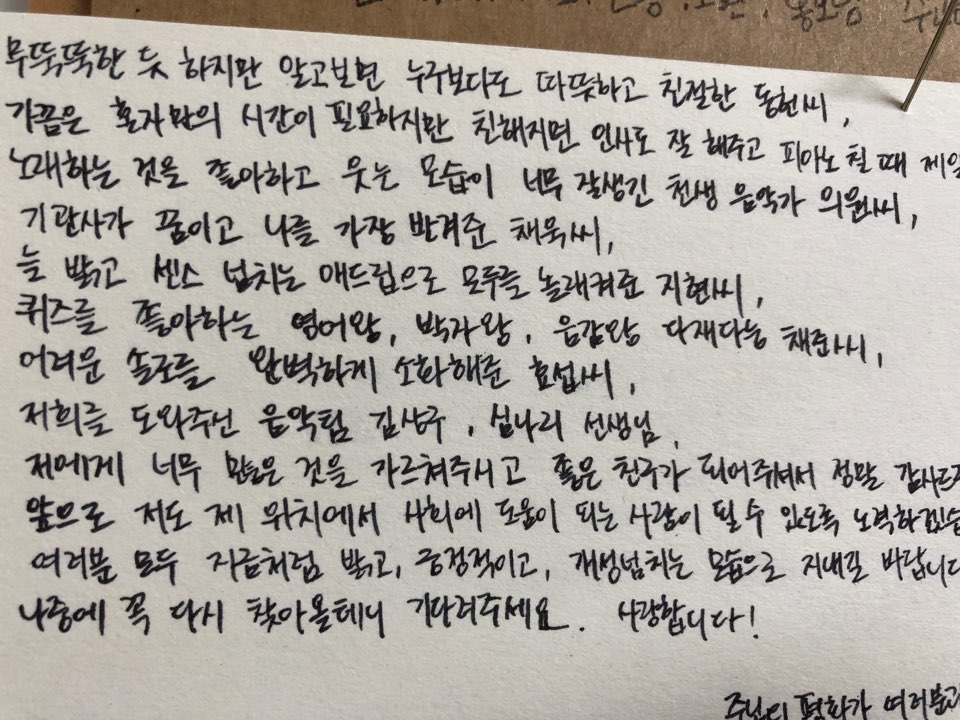 홍보팀
무뚝뚝한 듯 하지만 알고보면 누구보다도 따뜻하고 친절한 동현씨,
가끔은 혼자만의 시간이 필요하지만 친해지면 인사도 잘 해주고 피아노 칠 때 제일
노래하는 것을 좋아하고 웃는 모습이 너무 잘생긴 천생 음악가 의원씨,
기관사가 꿈이고 나를 가장 반겨준 채묵씨,
늘 밝고 센스 넘치는 애드립으로 모두를 놀래켜준 지현씨,
퀴즈를 좋아하는 영어왕, 박자왕, 음감왕 다재다능 채준씨,
어려운 솔로를 완벽하게 소화해준 효섭씨,
저희를 도와주신 음악팀 김상구, 심나리 선생님,
저에게 너무 많은 것을 가르쳐주시고 좋은 친구가 되어주셔서 정말 감사드
앞으로 저도 제 위치에서 사회에 도움이 되는 사람이 될 수 있도록 노력하겠습
여러분 모두 지금처럼 밝고, 긍정적이고, 개성넘치는 모습으로 지내길 바랍니다
나중에 꼭 다시 찾아올테니 기다려주세요. 사랑합니다!
주님의 평화가 여러분과